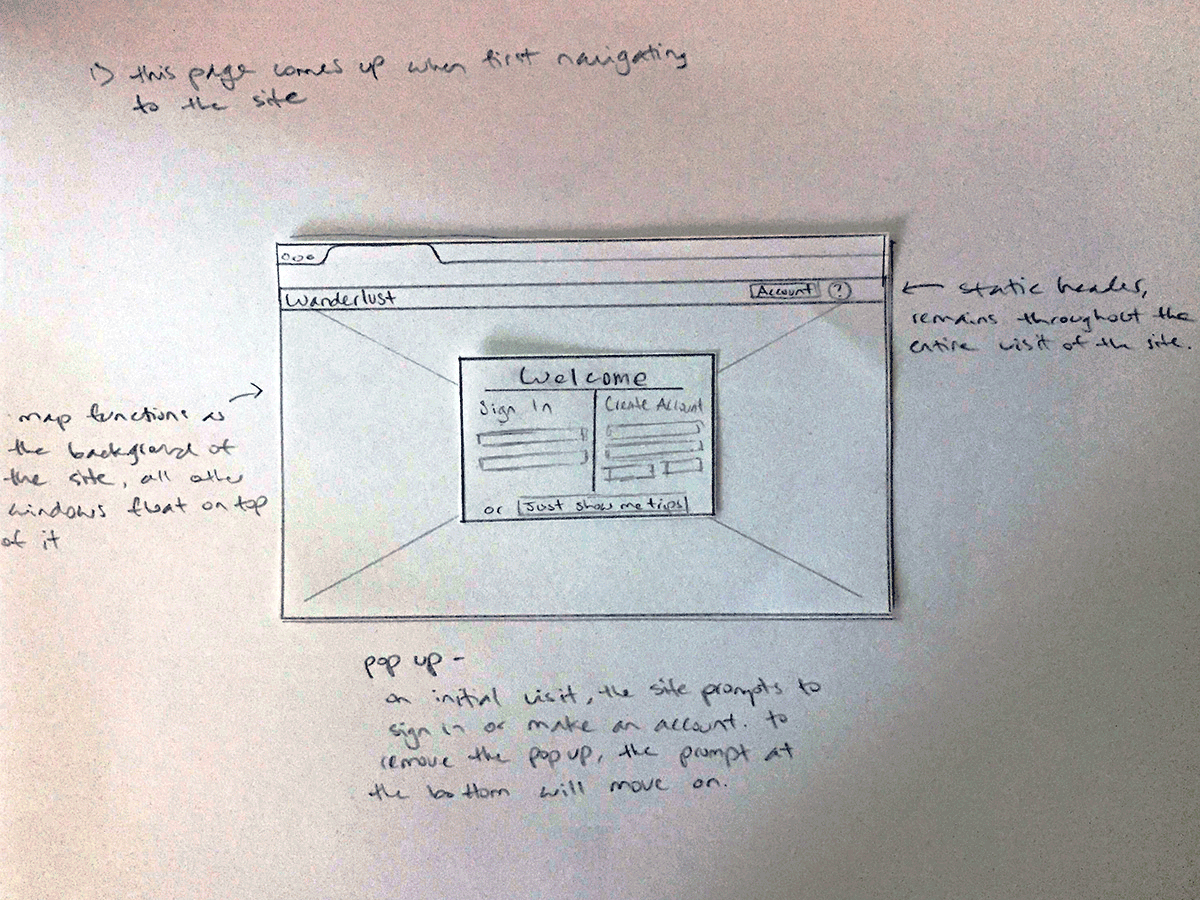 1) this page comes up when first navigating
to the site
Wanderlust
Account
?
← static header,
remains throughout the
entire visit of the site.
map functions as
the background of
the site, all other
windows float on top
of it
Welcome
Sign In
Create Account
or Just show me trips
pop up -
on initial visit, the site prompts to
sign in or make an account. to
remove the pop up, the prompt at
the bottom will move on.